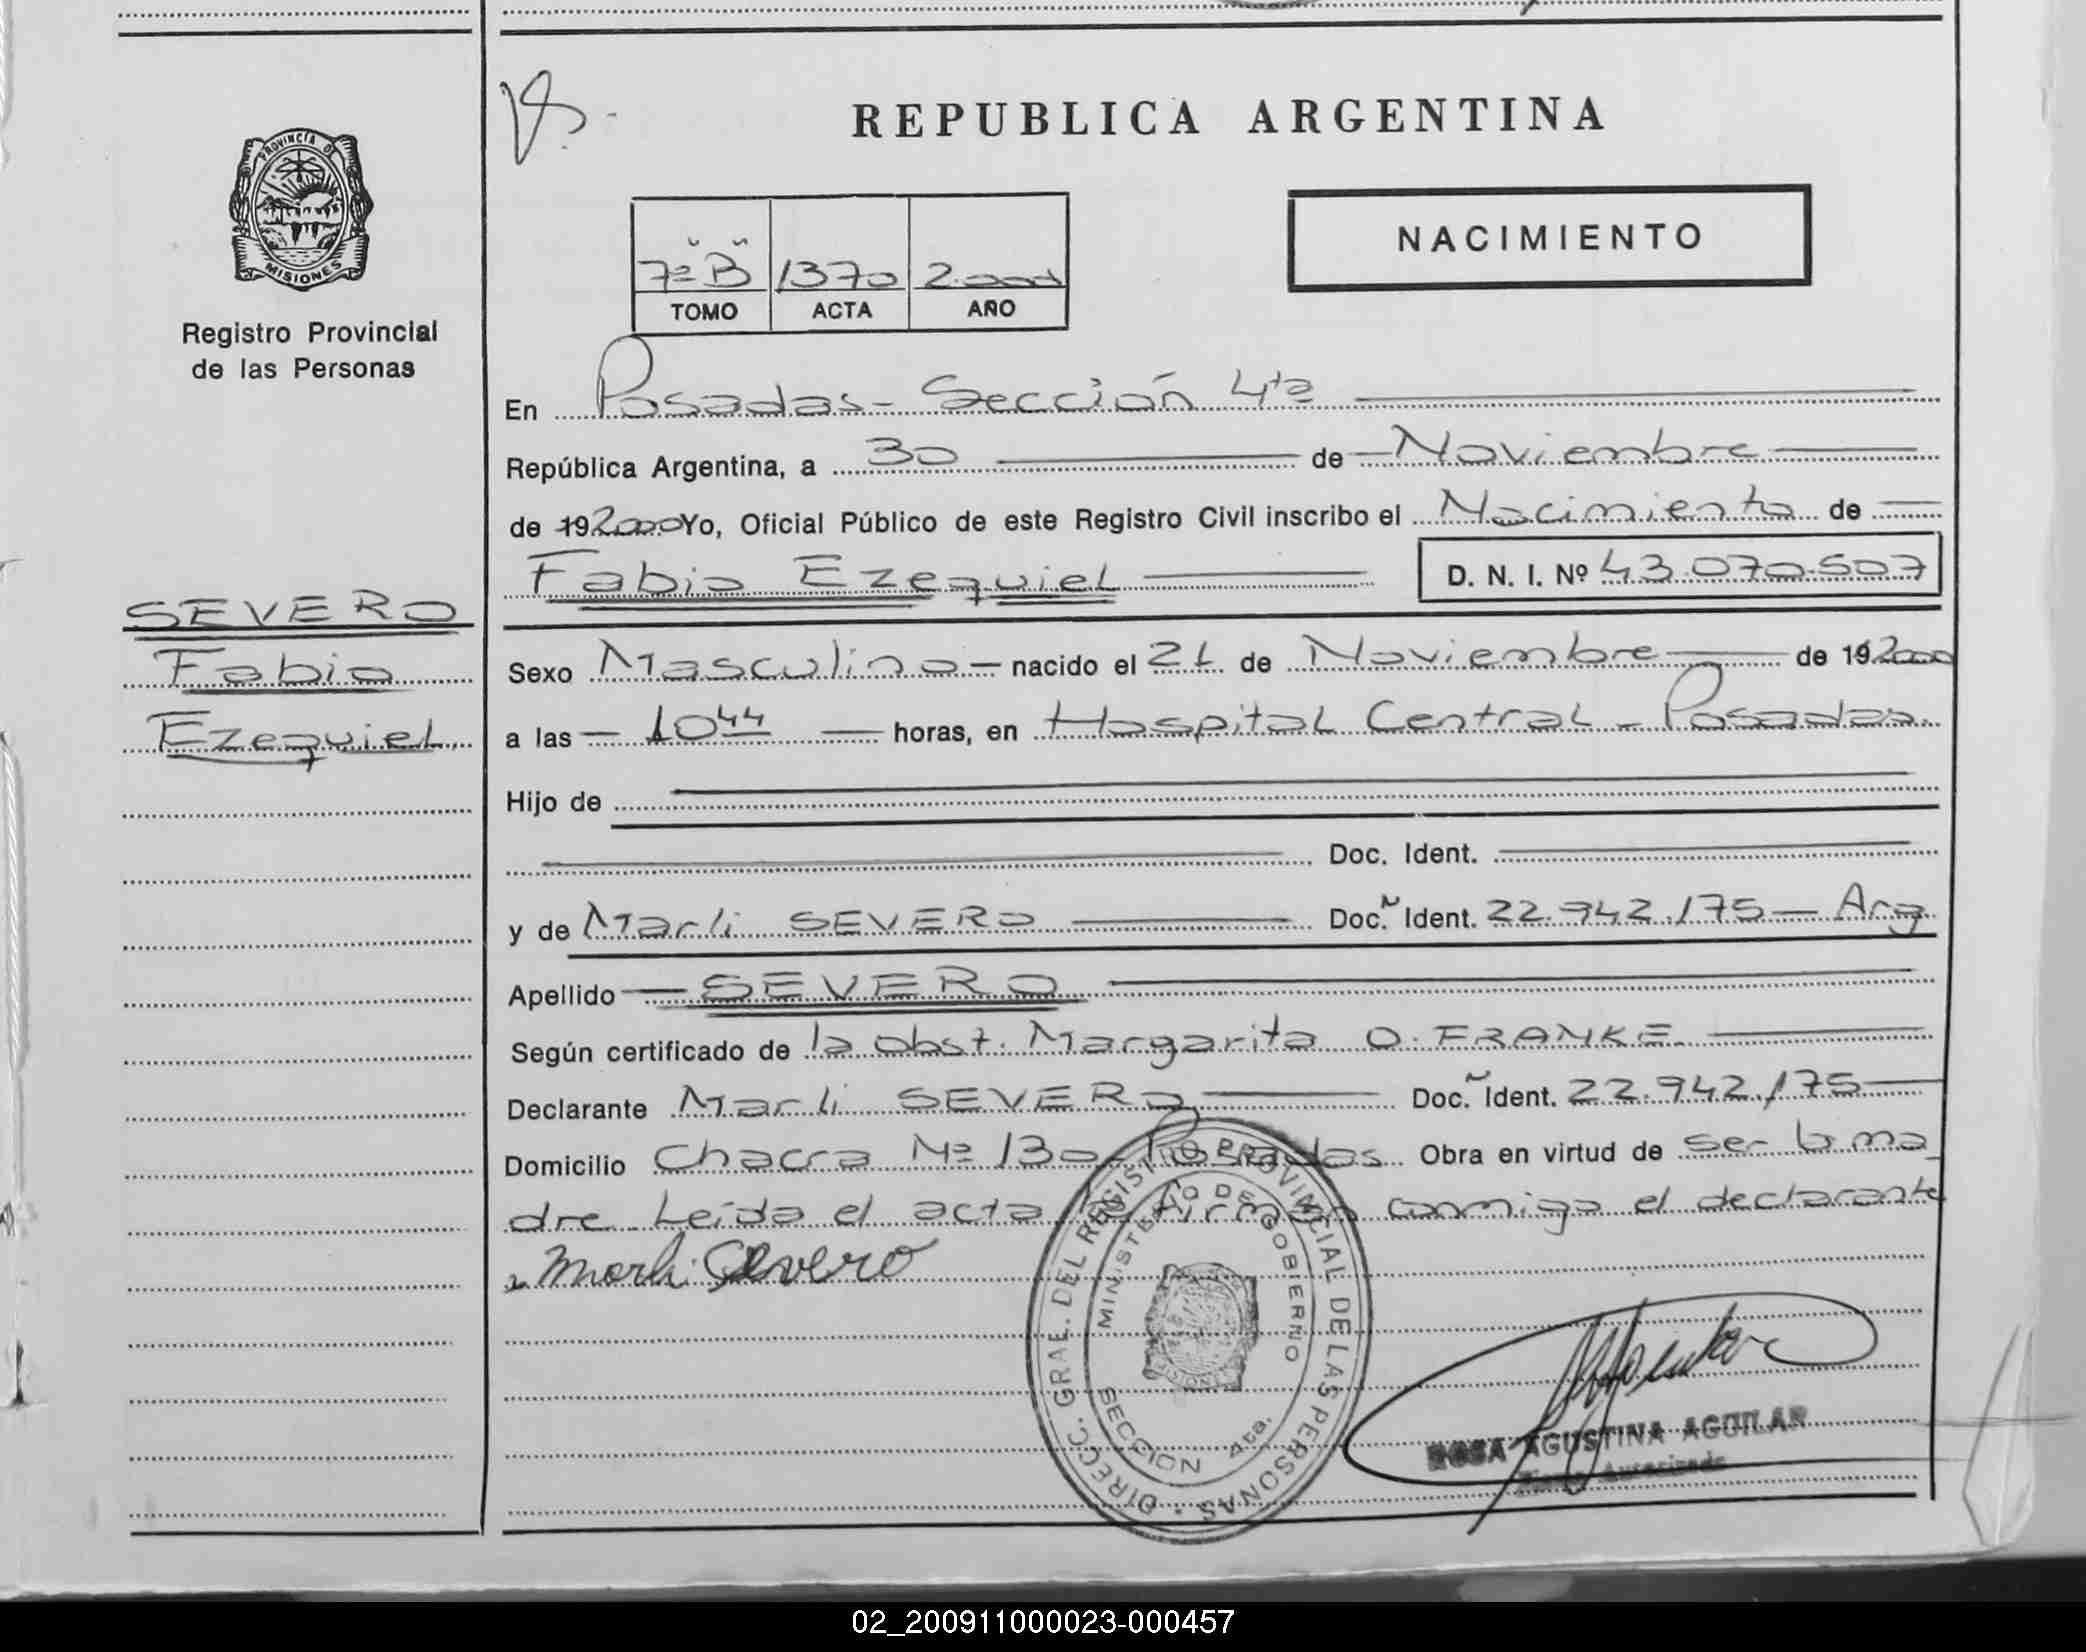 REPUBLICA ARGENTINA
PROVINCIA DE
MISIONES
Registro Provincial
de las Personas
7º B 1370 2.000
TOMO ACTA AÑO
NACIMIENTO
En Posadas - Sección 4ta
República Argentina, a 30 de Noviembre
de 19 2000 Yo, Oficial Público de este Registro Civil inscribo el Nacimiento de
Fabio Ezequiel D. N. I. Nº 43.070.507
SEVERO
Fabio
Ezequiel
Sexo Masculino nacido el 21 de Noviembre de 19 2000
a las 10 44 horas, en Hospital Central - Posadas
Hijo de
Doc. Ident.
y de Marli SEVERO Doc. Ident. 22.942.175 - Arg
Apellido SEVERO
Según certificado de la obst. Margarita O. FRANKE
Declarante Marli SEVERO Doc. Ident. 22.942.175
Domicilio Chacra Nº 130 - Posadas Obra en virtud de ser la ma
dre Leída el acta la firman conmigo el declarante
Marli Severo
DIRECC. GRAL. DEL REGISTRO PROVINCIAL DE LAS PERSONAS
MINISTERIO DE GOBIERNO
SECCION 4ta.
MISIONES
ROSA AGUSTINA AGUILAR
Firma Autorizada
02_200911000023-000457